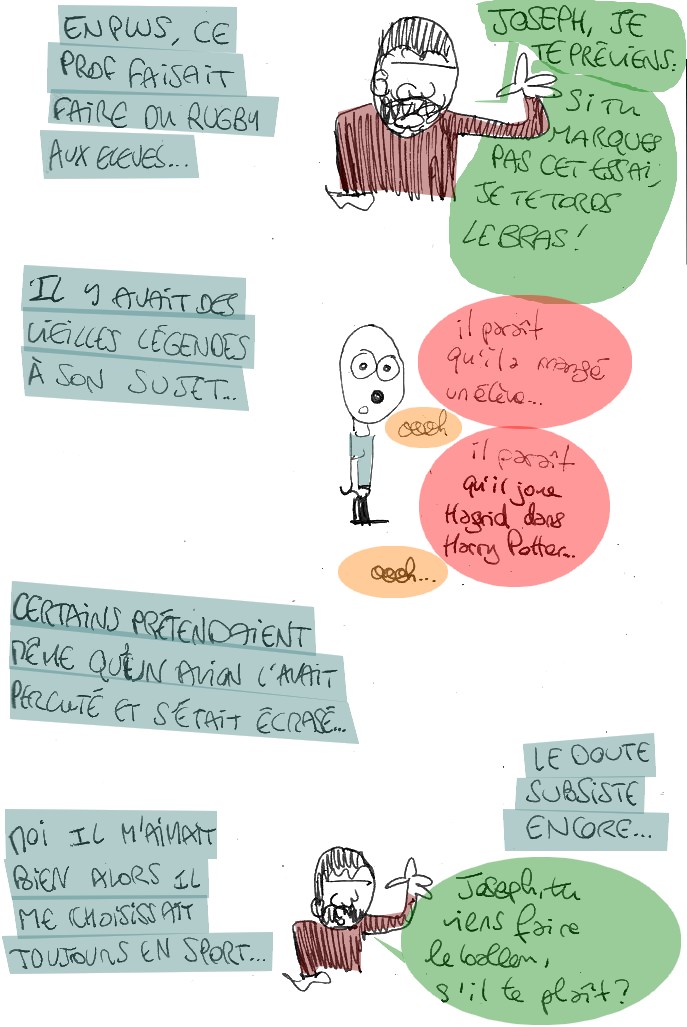 EN PLUS, CE
PROF FAISAIT
FAIRE DU RUGBY
AUX ELEVES...
JOSEPH, JE
TE PRÉVIENS.
SI TU
MARQUES
PAS CET ESSAI,
JE TE TORDS
LE BRAS!
IL Y AVAIT DES
VIEILLES LÉGENDES
À SON SUJET...
il paraît
qu'il a mangé
un élève...
oooh
il paraît
qu'il joue
Hagrid dans
Harry Potter...
oooh...
CERTAINS PRÉTENDAIENT
MÊME QU'UN AVION L'AVAIT
PERCUTÉ ET S'ÉTAIT ÉCRASÉ...
LE DOUTE
SUBSISTE
ENCORE...
MOI IL M'AIMAIT
BIEN ALORS IL
ME CHOISISSAIT
TOUJOURS EN SPORT...
Joseph, tu
viens faire
le ballon,
s'il te plaît?